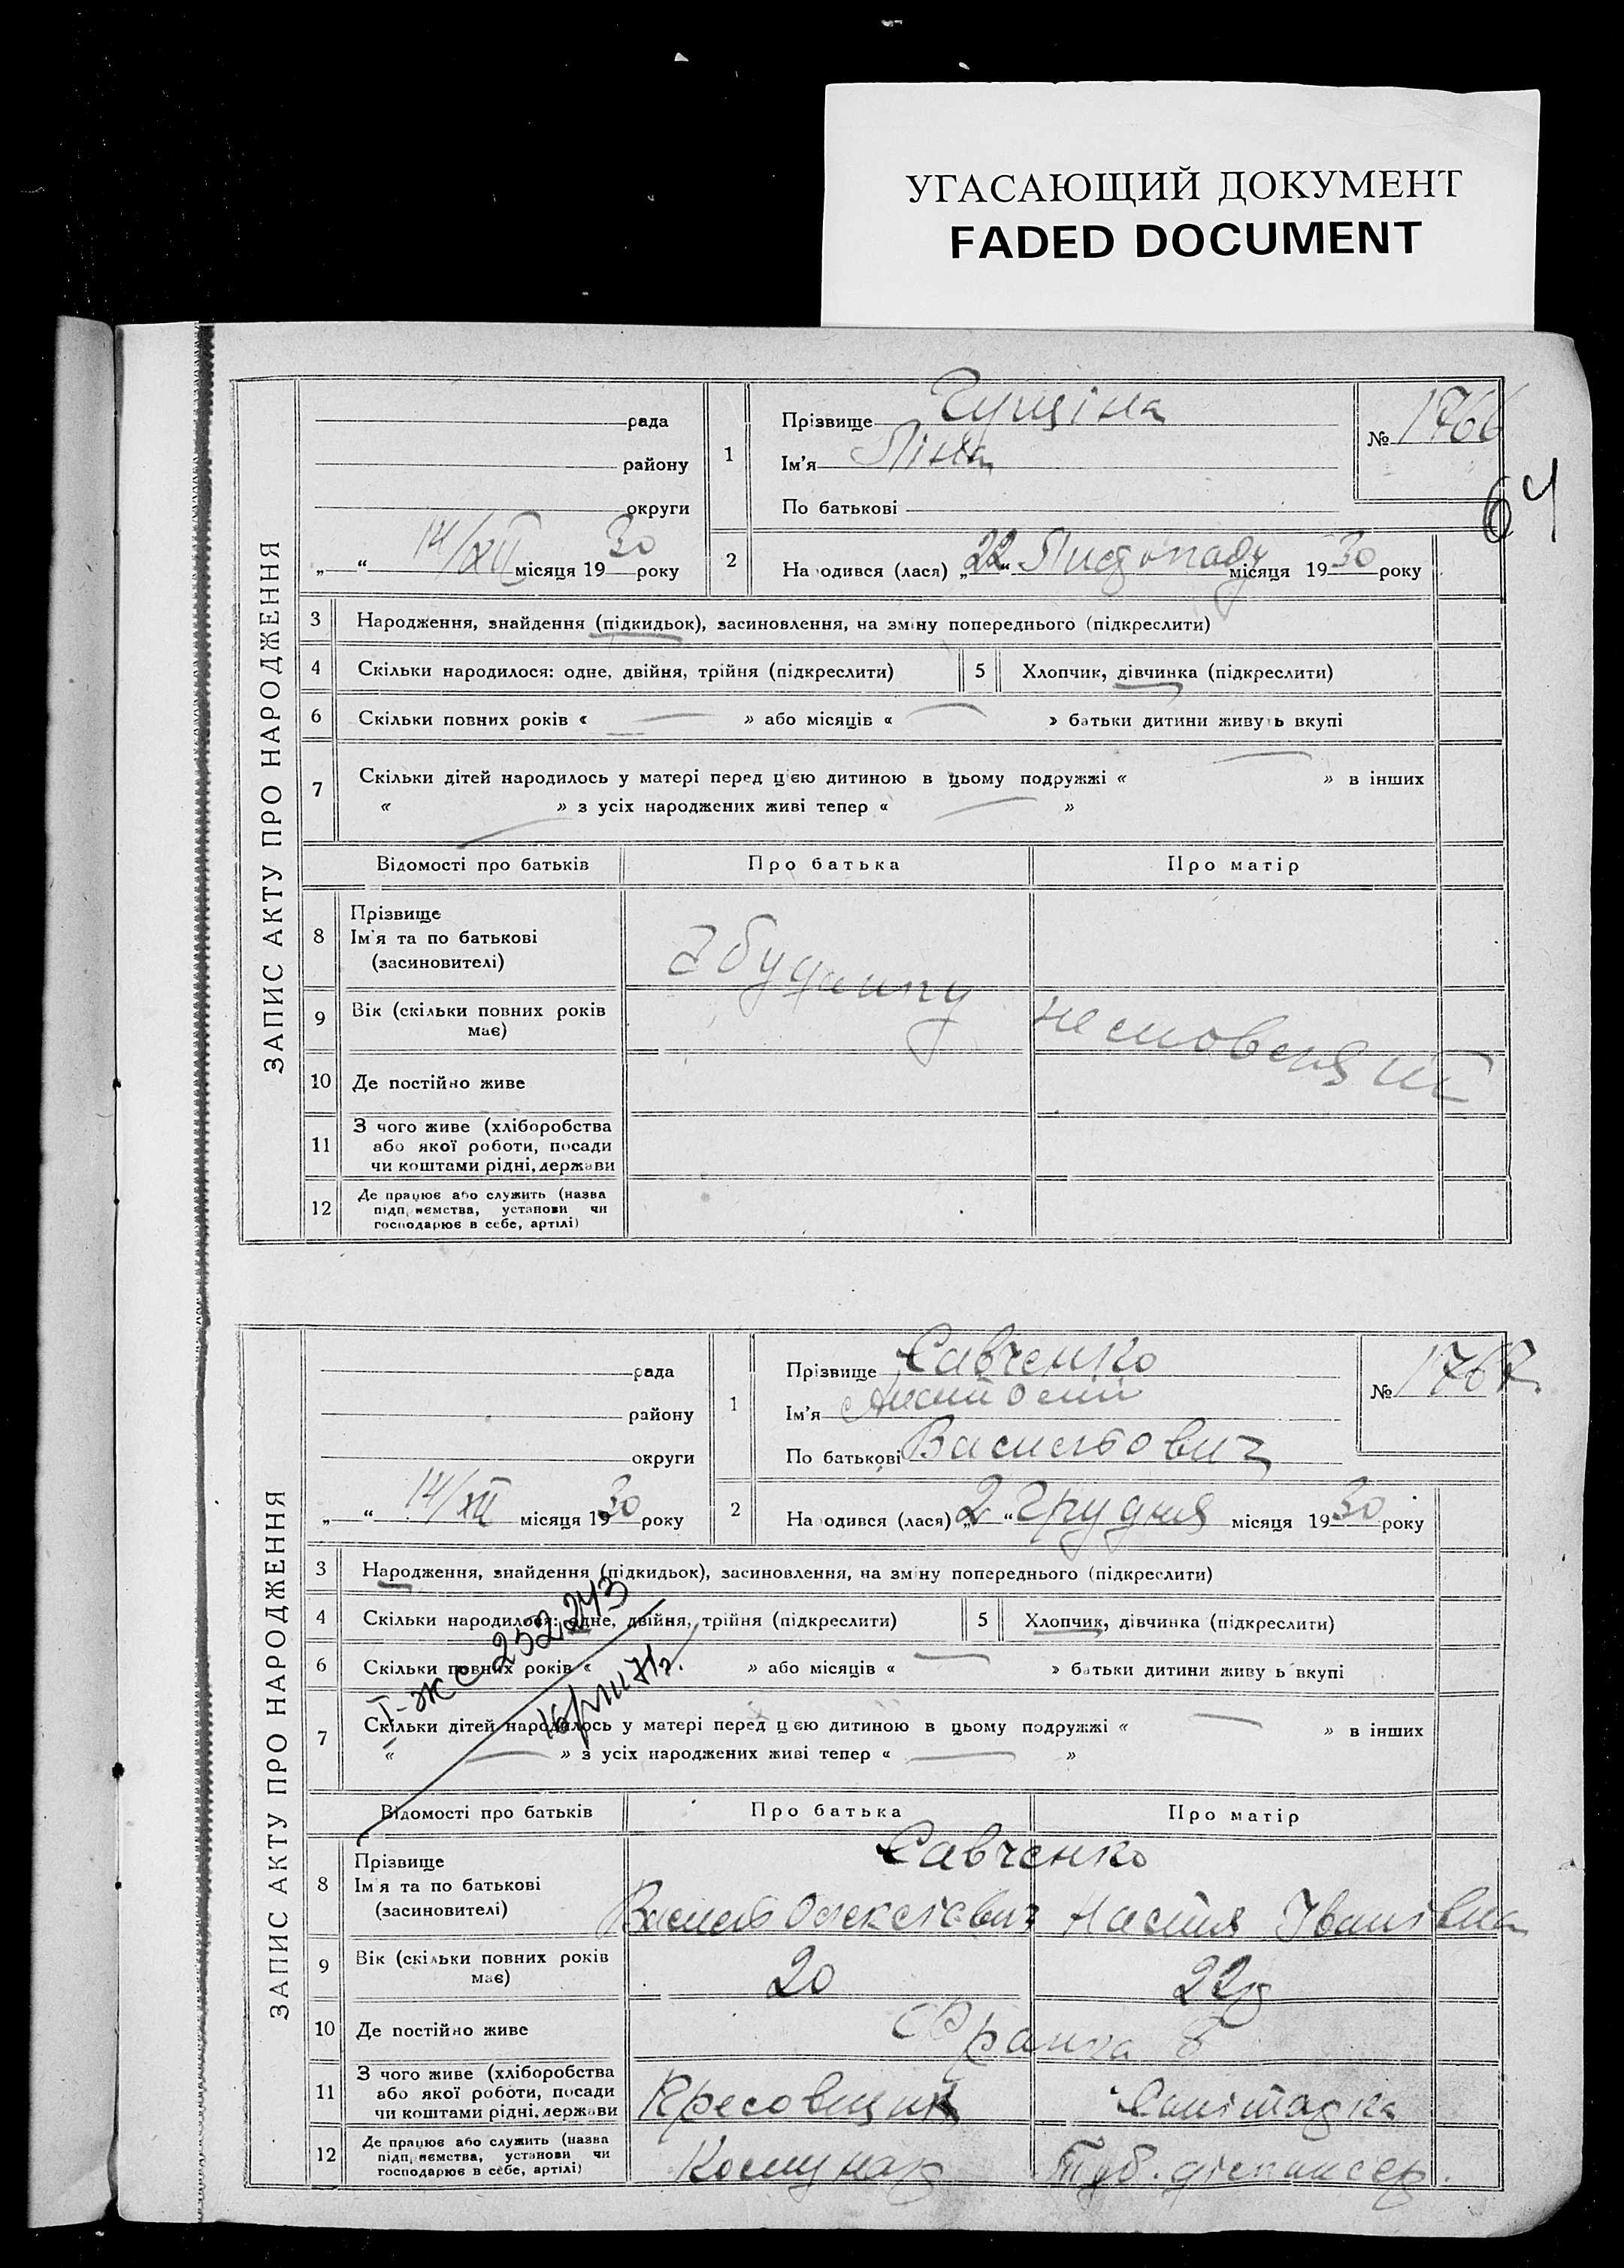 УГАСАЮЩИЙ ДОКУМЕНТ
FADED DOCUMENT
64
ЗАПИС АКТУ ПРО НАРОДЖЕННЯ
рада
району
округи
„ “ 14/XII місяця 1930 року
1
Прізвище Гущіна
Ім'я Ліна
По батькові
№ 1766
2
На одився (лася) „22“ Листопаду місяця 1930 року
3 Народження, знайдення (підкидьок), засиновлення, на зміну попереднього (підкреслити)
4 Скільки народилося: одне, двійня, трійня (підкреслити) 5 Хлопчик, дівчинка (підкреслити)
6 Скільки повних років « — » або місяців « — » батьки дитини живуть вкупі
7 Скільки дітей народилось у матері перед цією дитиною в цьому подружжі « — » в інших
« — » з усіх народжених живі тепер « — »
Відомості про батьків Про батька Про матір
8 Прізвище
Ім'я та по батькові
(засиновителі)
9 Вік (скільки повних років
має)
10 Де постійно живе
11 З чого живе (хліборобства
або якої роботи, посади
чи коштами рідні, держави
12 Де працює або служить (назва
підп иємства, установи чи
господарює в себе, артілі)
ЗАПИС АКТУ ПРО НАРОДЖЕННЯ
рада
району
округи
„ “ 14/XII місяця 1930 року
1
Прізвище Савченко
Ім'я
По батькові Васильович
№ 1767
2
На одився (лася) „2“ Грудня місяця 1930 року
3 Народження, знайдення (підкидьок), засиновлення, на зміну попереднього (підкреслити)
4 Скільки народилося: одне, двійня, трійня (підкреслити) 5 Хлопчик, дівчинка (підкреслити)
6 Скільки повних років « » або місяців « — » батьки дитини живу ь вкупі
I-ЖС 252243
16/VIII 71г.
7 Скільки дітей народилось у матері перед цією дитиною в цьому подружжі « — » в інших
« — » з усіх народжених живі тепер « — »
Відомості про батьків Про батька Про матір
8 Прізвище
Ім'я та по батькові
(засиновителі)
Савченко
Василь Олексієвич Настя Іванівна
9 Вік (скільки повних років
має)
20 22р
10 Де постійно живе Франка 8
11 З чого живе (хліборобства
або якої роботи, посади
чи коштами рідні, держави
Пресовщик Санітарка
12 Де працює або служить (назва
підп иємства, установи чи
господарює в себе, артілі)
Комунар Туб. диспансер.